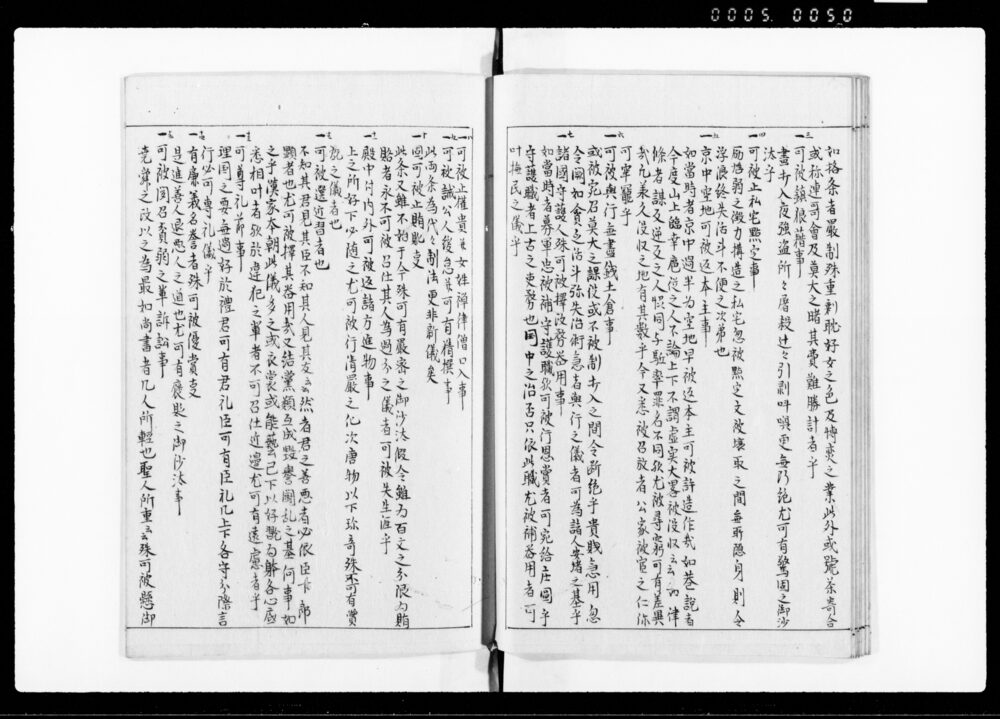 0005. 0050
如格条者嚴制殊重剰耽好女之色及博奕之業此外或號茶寄合
或称連哥會及莫大之賭其費難勝計者乎
三
一可被鎮狼藉事
晝打入夜強盗所々屠殺辻々引剥叫喚更無断絶尤可有警固之御沙
汰乎
四
一可被止私宅點定事
励尫弱之微力構造之私宅忽被點定又被壊取之間無所隠身則令
浮浪終失活斗不便之次第也
五
一京中空地可被返本主事
如當時者京中過半為空地早被返本主可被許造作哉如巷説者
今度山上臨幸扈従之人不論上下不謂虚実大畧被没収云々如律
條者謀反逆之人同与駈率罪名不同欤尤被尋究可有差異
哉凢承久没収之地有其數乎今又悉被召放者公家被官之仁弥
可牢籠乎
六
一可被興行無盡銭土倉事
或被宛召莫大之課役或不被制打入之間令断絶乎貴賤急用忽
令闕如貧乏活斗弥失治術急有興行之儀者可為諸人安堵之基乎
七
一諸國守護人殊可被擇政務器用事
如當時者募軍忠被補守護職欤可被行恩賞者可宛給庄園乎
守護職者上古之吏務也國中之治否只依此職尤被補器用者可
叶撫民之儀乎
八
一可被止権貴并女性禅律僧口入事
九
一可被誡公人緩怠并可有精撰事
此両条為代々制法更非新儀矣
十
一固可被止賄貨事
此条又雖不始于今殊可有嚴密之御沙汰假令雖為百文之分限為賄
賂者永不可被召仕其人為過分之儀者可被失生涯乎
十一
一殿中付内外可被返諸方進物事
上之所好下必随之尤可被行清嚴之化次唐物以下珍奇殊不可有賞
翫之儀者也
十二
一可被選近習者事
不知其君見其臣不知其人見其友云々然者君之善悪者必依臣下即
顕者也尤可被擇其器用哉又結黨類互成毀誉闘乱之基何事如
之乎漢家本朝此儀多之或衣裳或能藝已下以好翫為躰各心底
悉相叶者欤於違犯之輩者不可召仕近邊尤可有遠慮者乎
十三
一可専礼節事
理國之要無過好於禮君可有君礼臣可有臣礼凢上下各守分際言
行必可専礼儀乎
十四
一有廉義名誉者殊可被優賞事
是進善人退悪人之道也尤可有褒貶之御沙汰事
十五
一可被聞召貧弱之輩訴訟事
堯舜之政以之為最如尚書者凢人所軽也聖人所重云々殊可被懸御